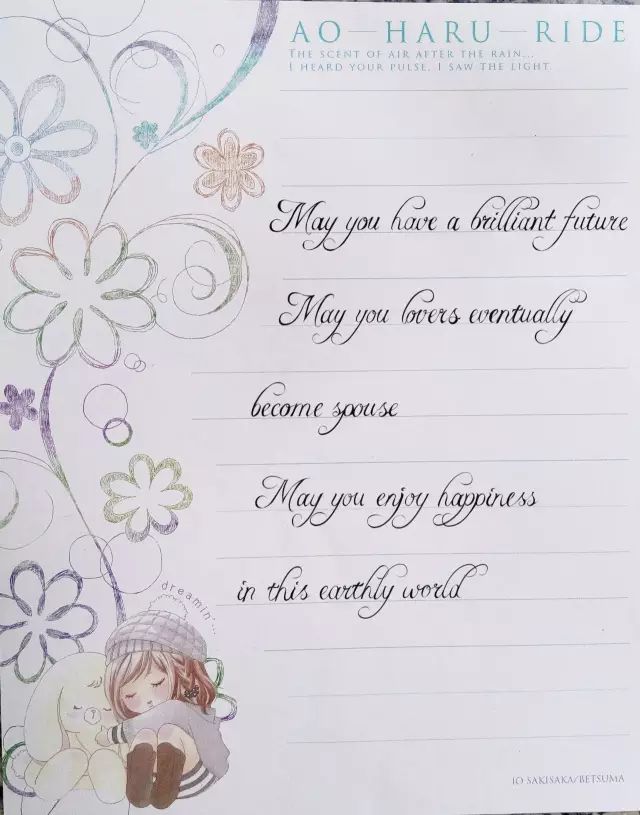 AO—HARU—RIDE
THE SCENT OF AIR AFTER THE RAIN...
I HEARD YOUR PULSE, I SAW THE LIGHT.
May you have a brilliant future
May you lovers eventually
become spouse
May you enjoy happiness
in this earthly world
dreamin'...
IO SAKISAKA/BETSUMA